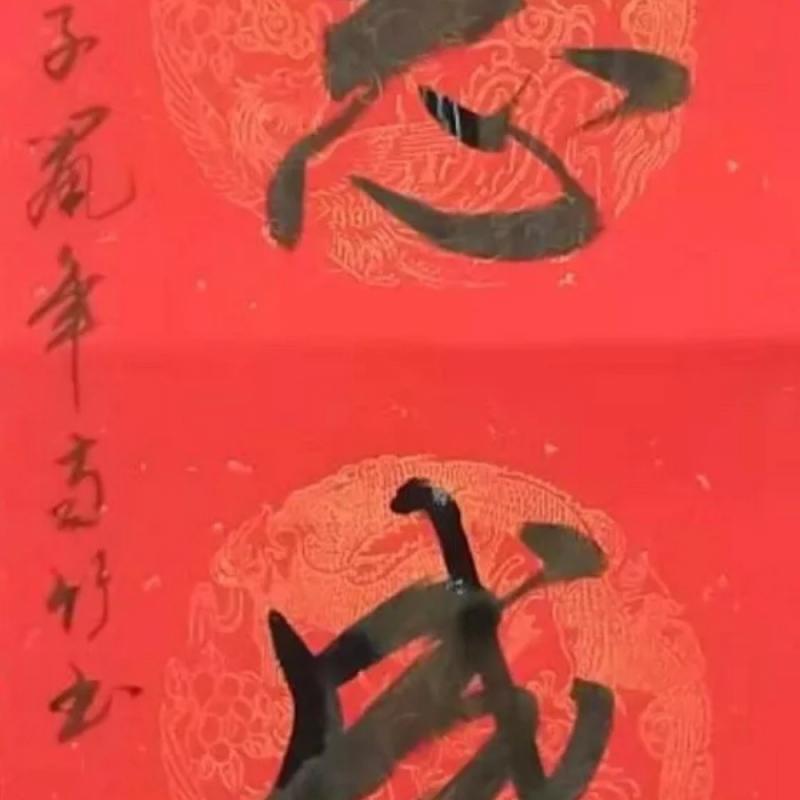 成
子鼠年高竹书